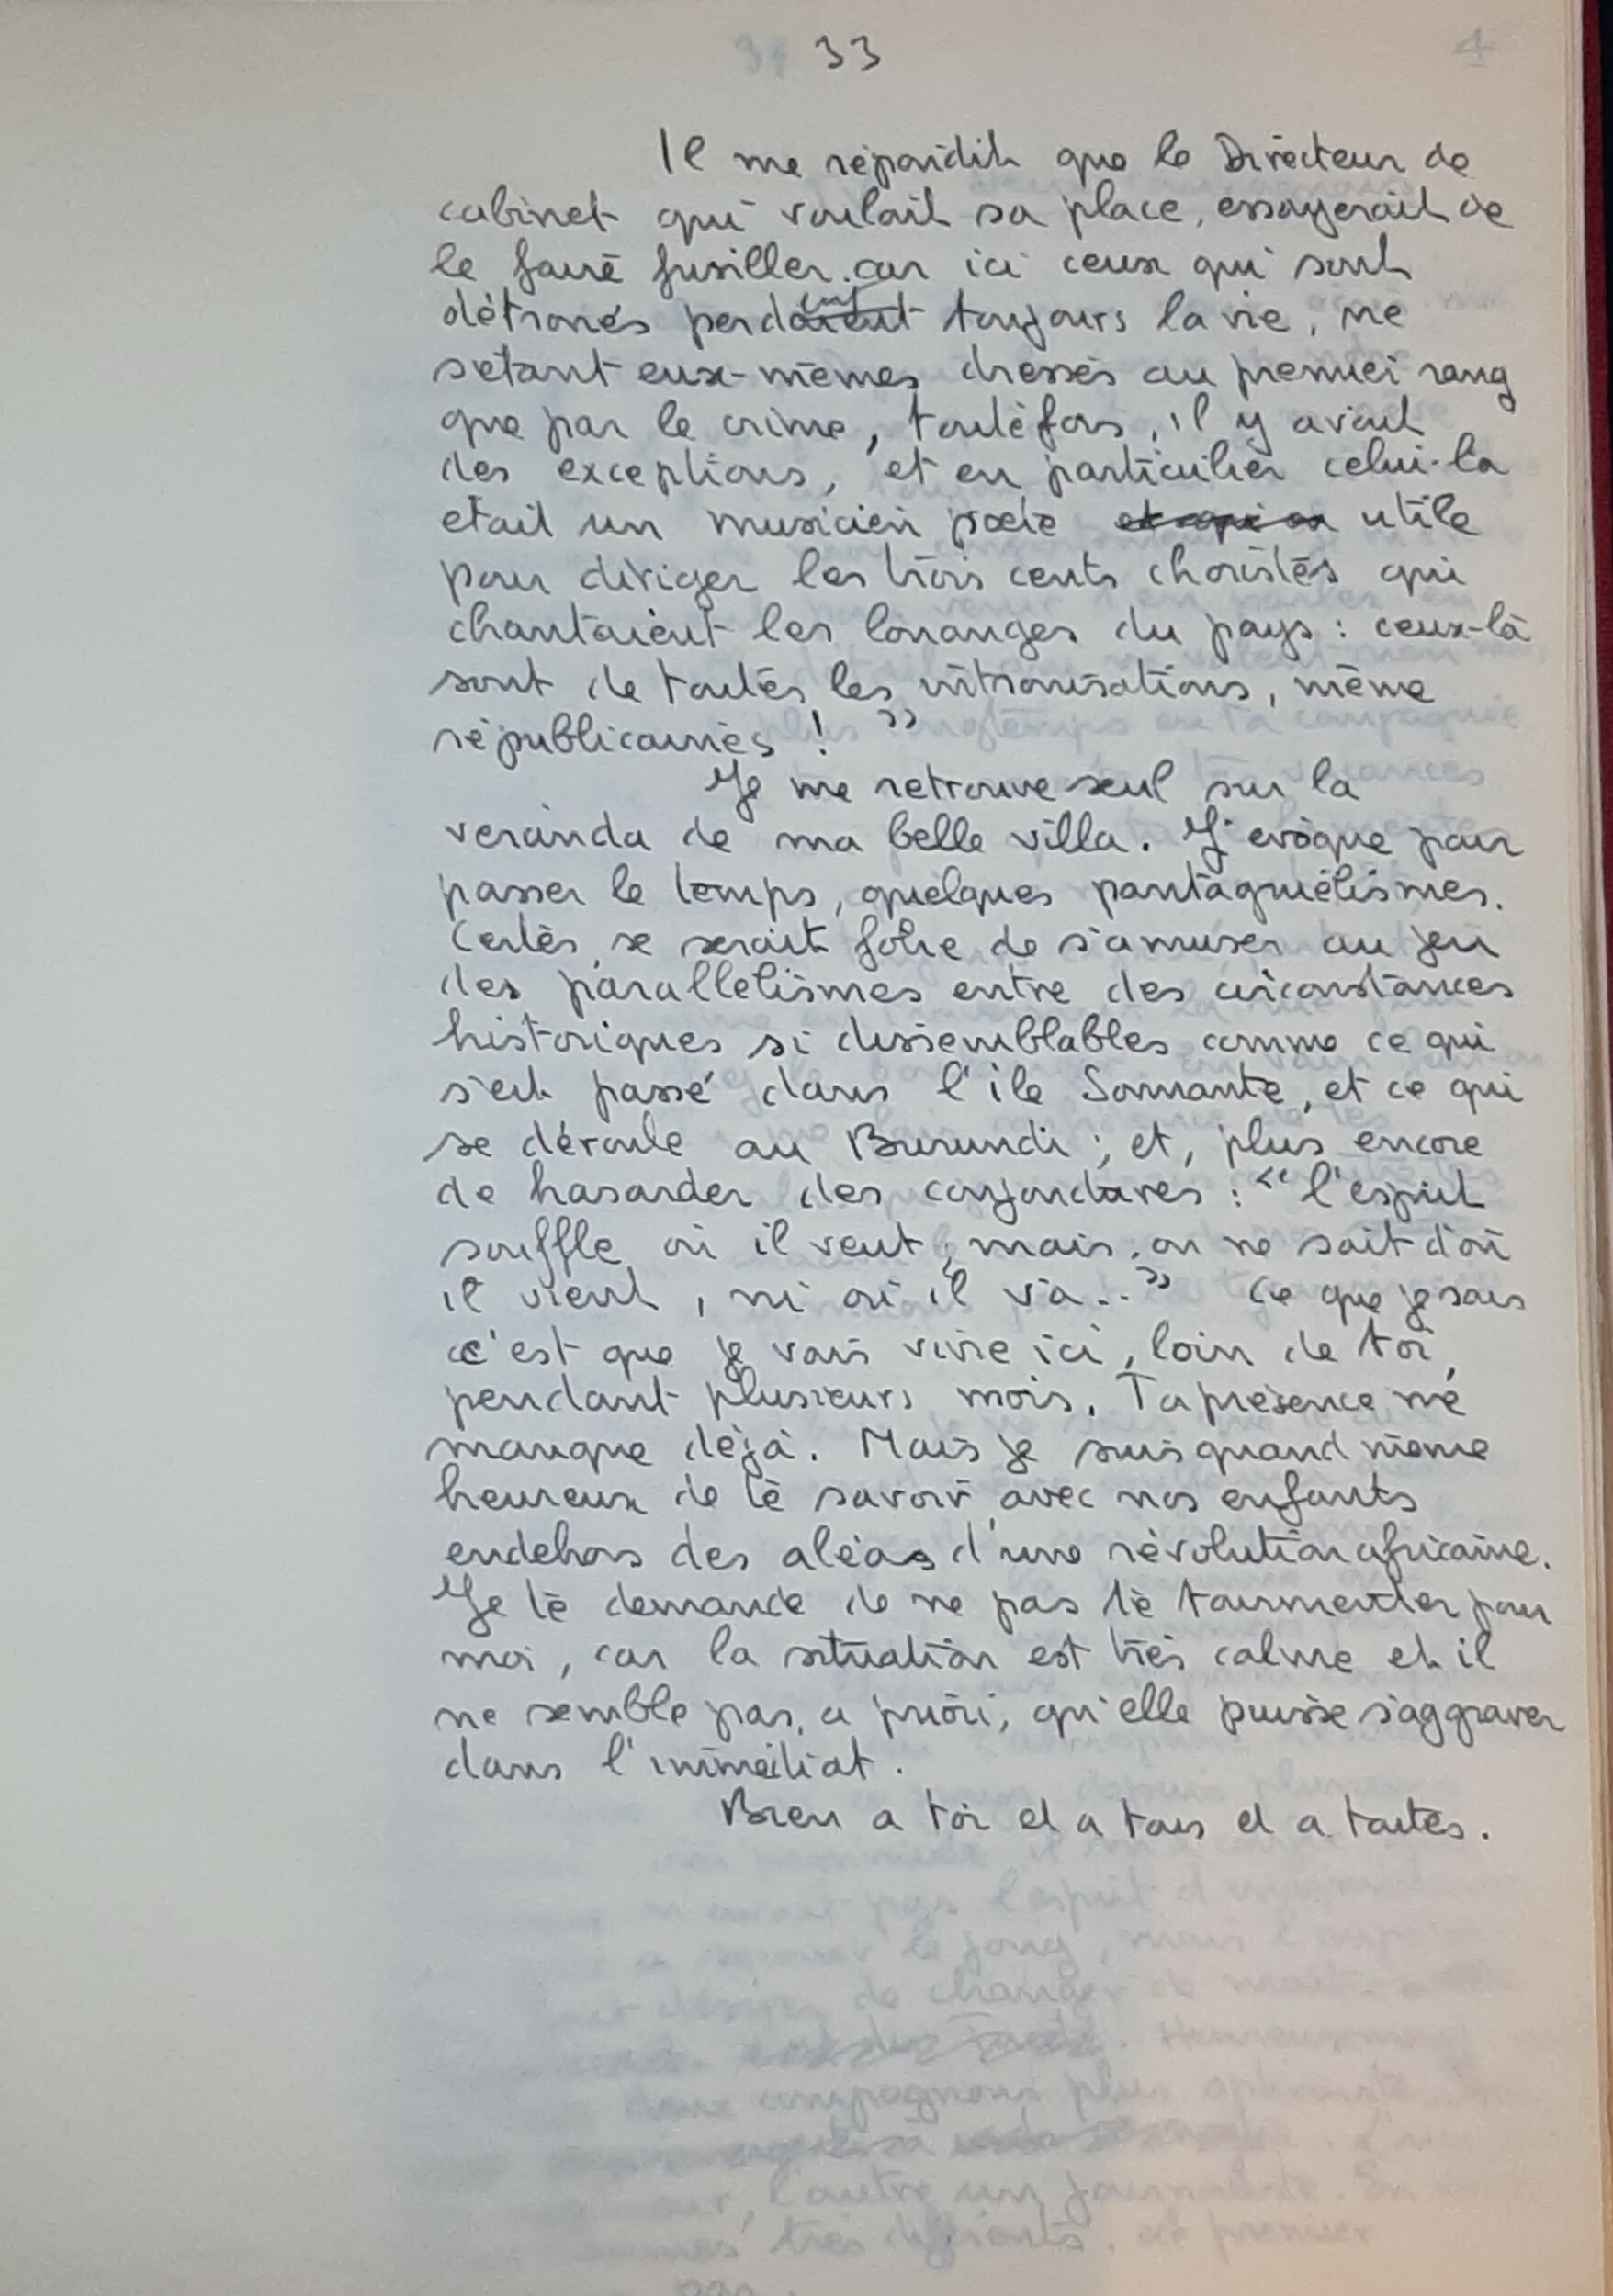 33
Il me répondit que le Directeur de
cabinet qui voulait sa place, essayerait de
le faire fusiller. car ici ceux qui sont
détronés perdent toujours la vie, ne
s'étant eux-mêmes dressés au premier rang
que par le crime, toutefois, il y avait
des exceptions, et en particulier celui-là
etait un musicien poète utile
pour diriger les trois cents choristes qui
chantaient les louanges du pays : ceux-là
sont de toutes les intronisations, même
républicaines ! "
Je me retrouve seul sur la
veranda de ma belle villa. J'evoque pour
passer le temps, quelques pantagruélismes.
Certes, se serait folie de s'amuser au jeu
des parallélismes entre des circonstances
historiques si dissemblables comme ce qui
s'est passé dans l'ile Sonnante, et ce qui
se déroule au Burundi ; et, plus encore
de hasarder des : " l'esprit
souffle où il veut, mais on ne sait d'où
il vient, ni où il va.. " Ce que je sais
c'est que je vais vivre ici, loin de toi,
pendant plusieurs mois. Ta présence me
manque déjà. Mais je suis quand même
heureux de te savoir avec nos enfants
endehors des aléas d'une révolution africaine.
Je te demande de ne pas te tourmenter pour
moi, car la situation est très calme et il
ne semble pas, a priori, qu'elle puisse s'aggraver
dans l'immédiat.
Bien a toi et a tous et a toutes.